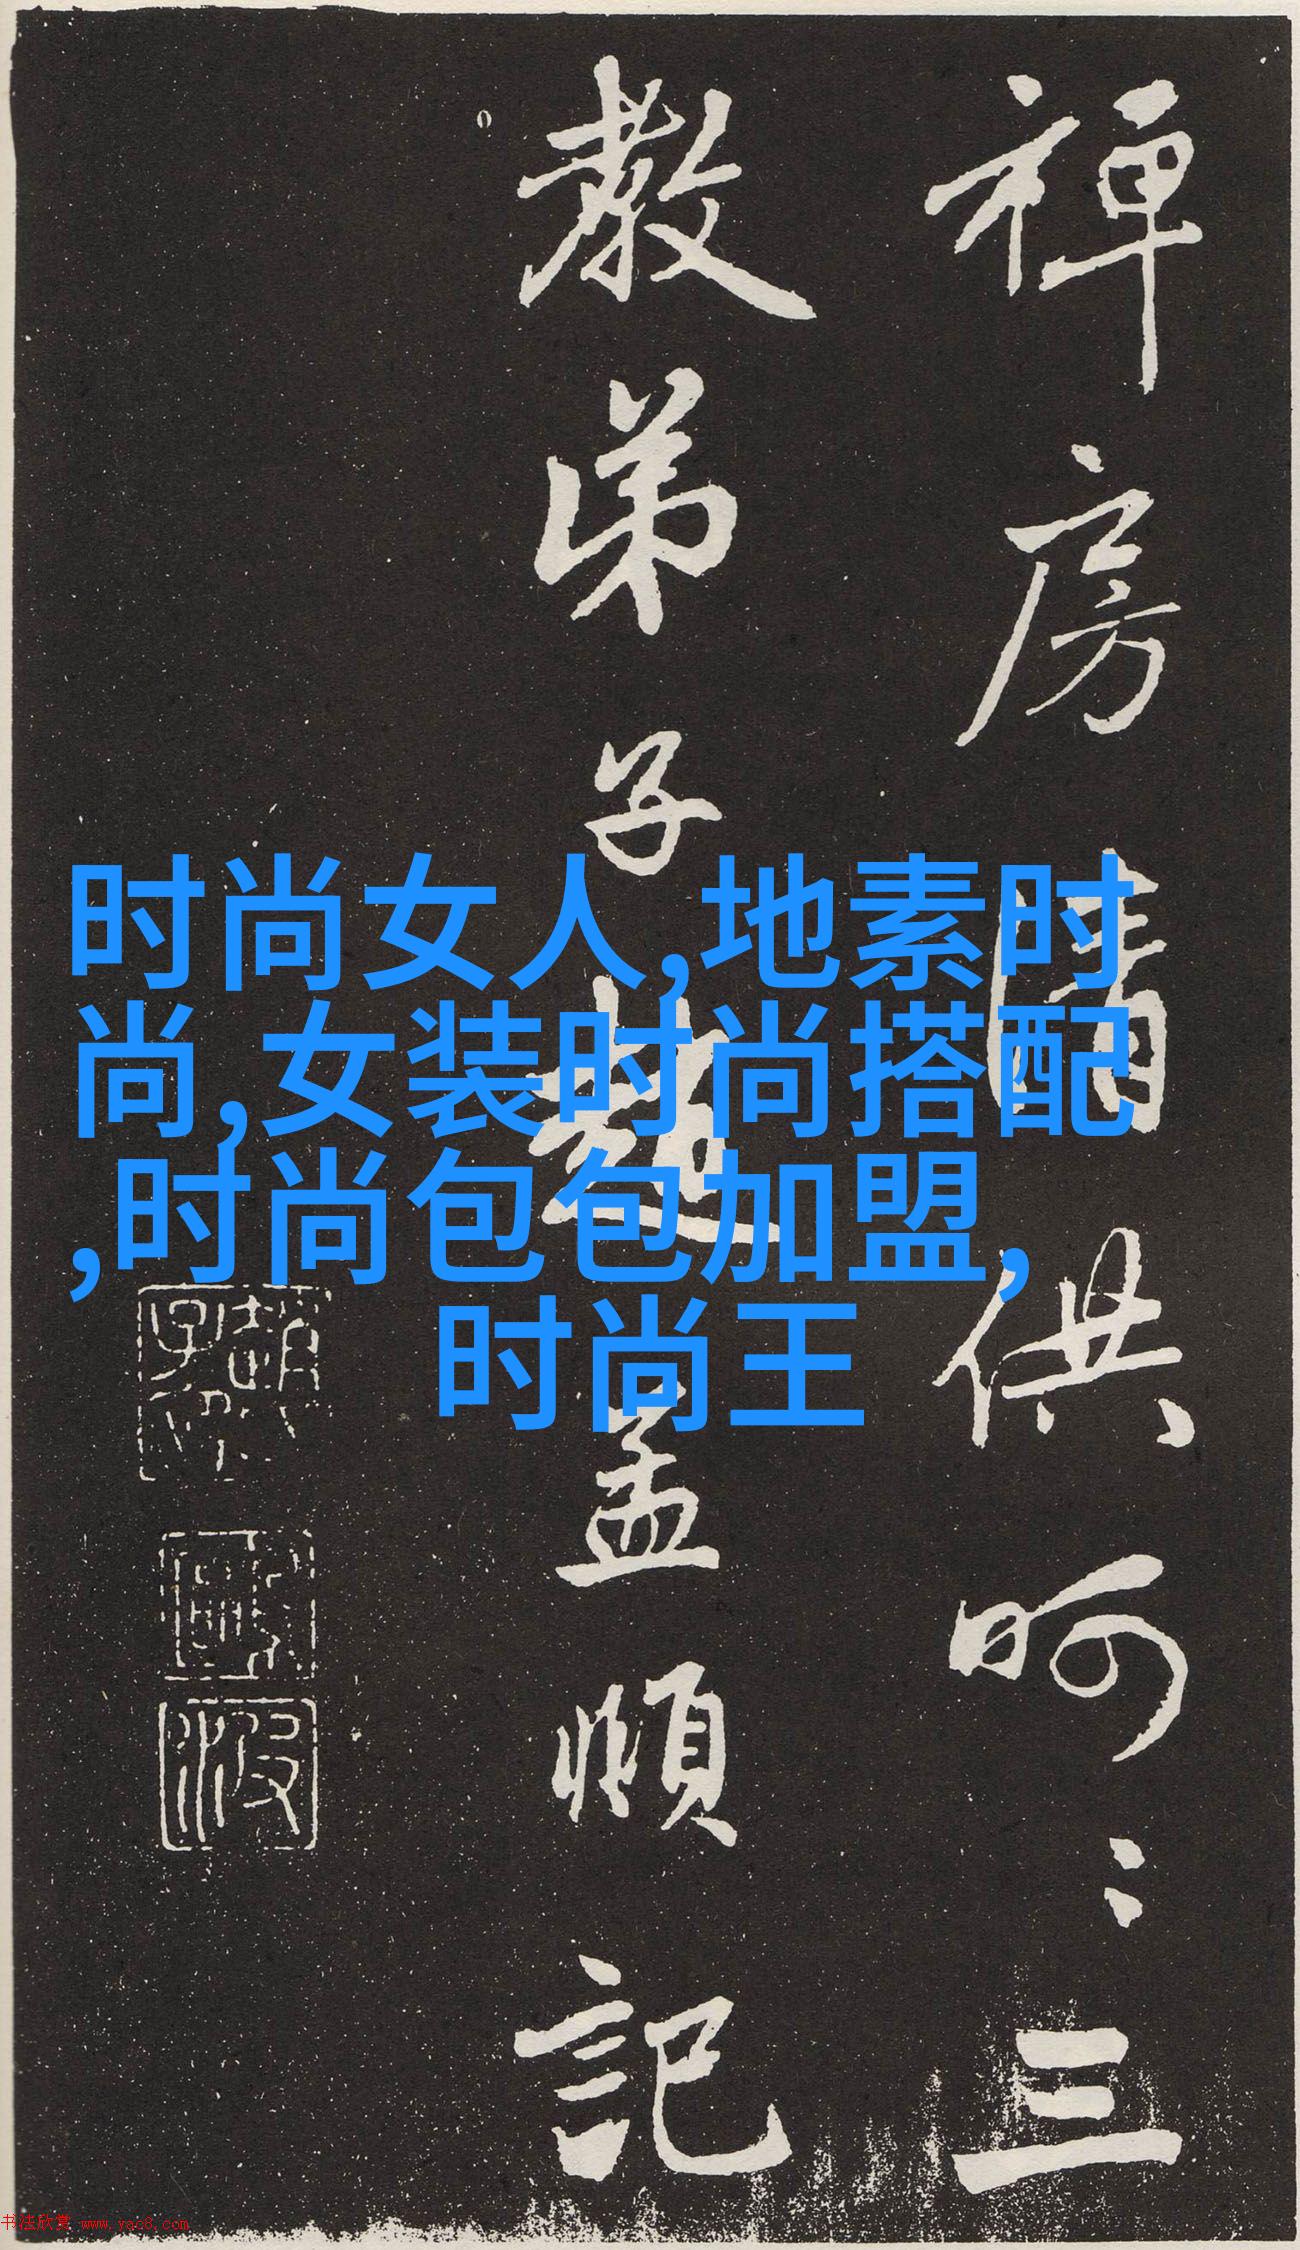 禅房清供呵〻三
教弟子趙孟頫記
时尚女人,地素时
尚,女装时尚搭配
,时尚包包加盟,
时尚王
书法欣赏 www.yac8.com